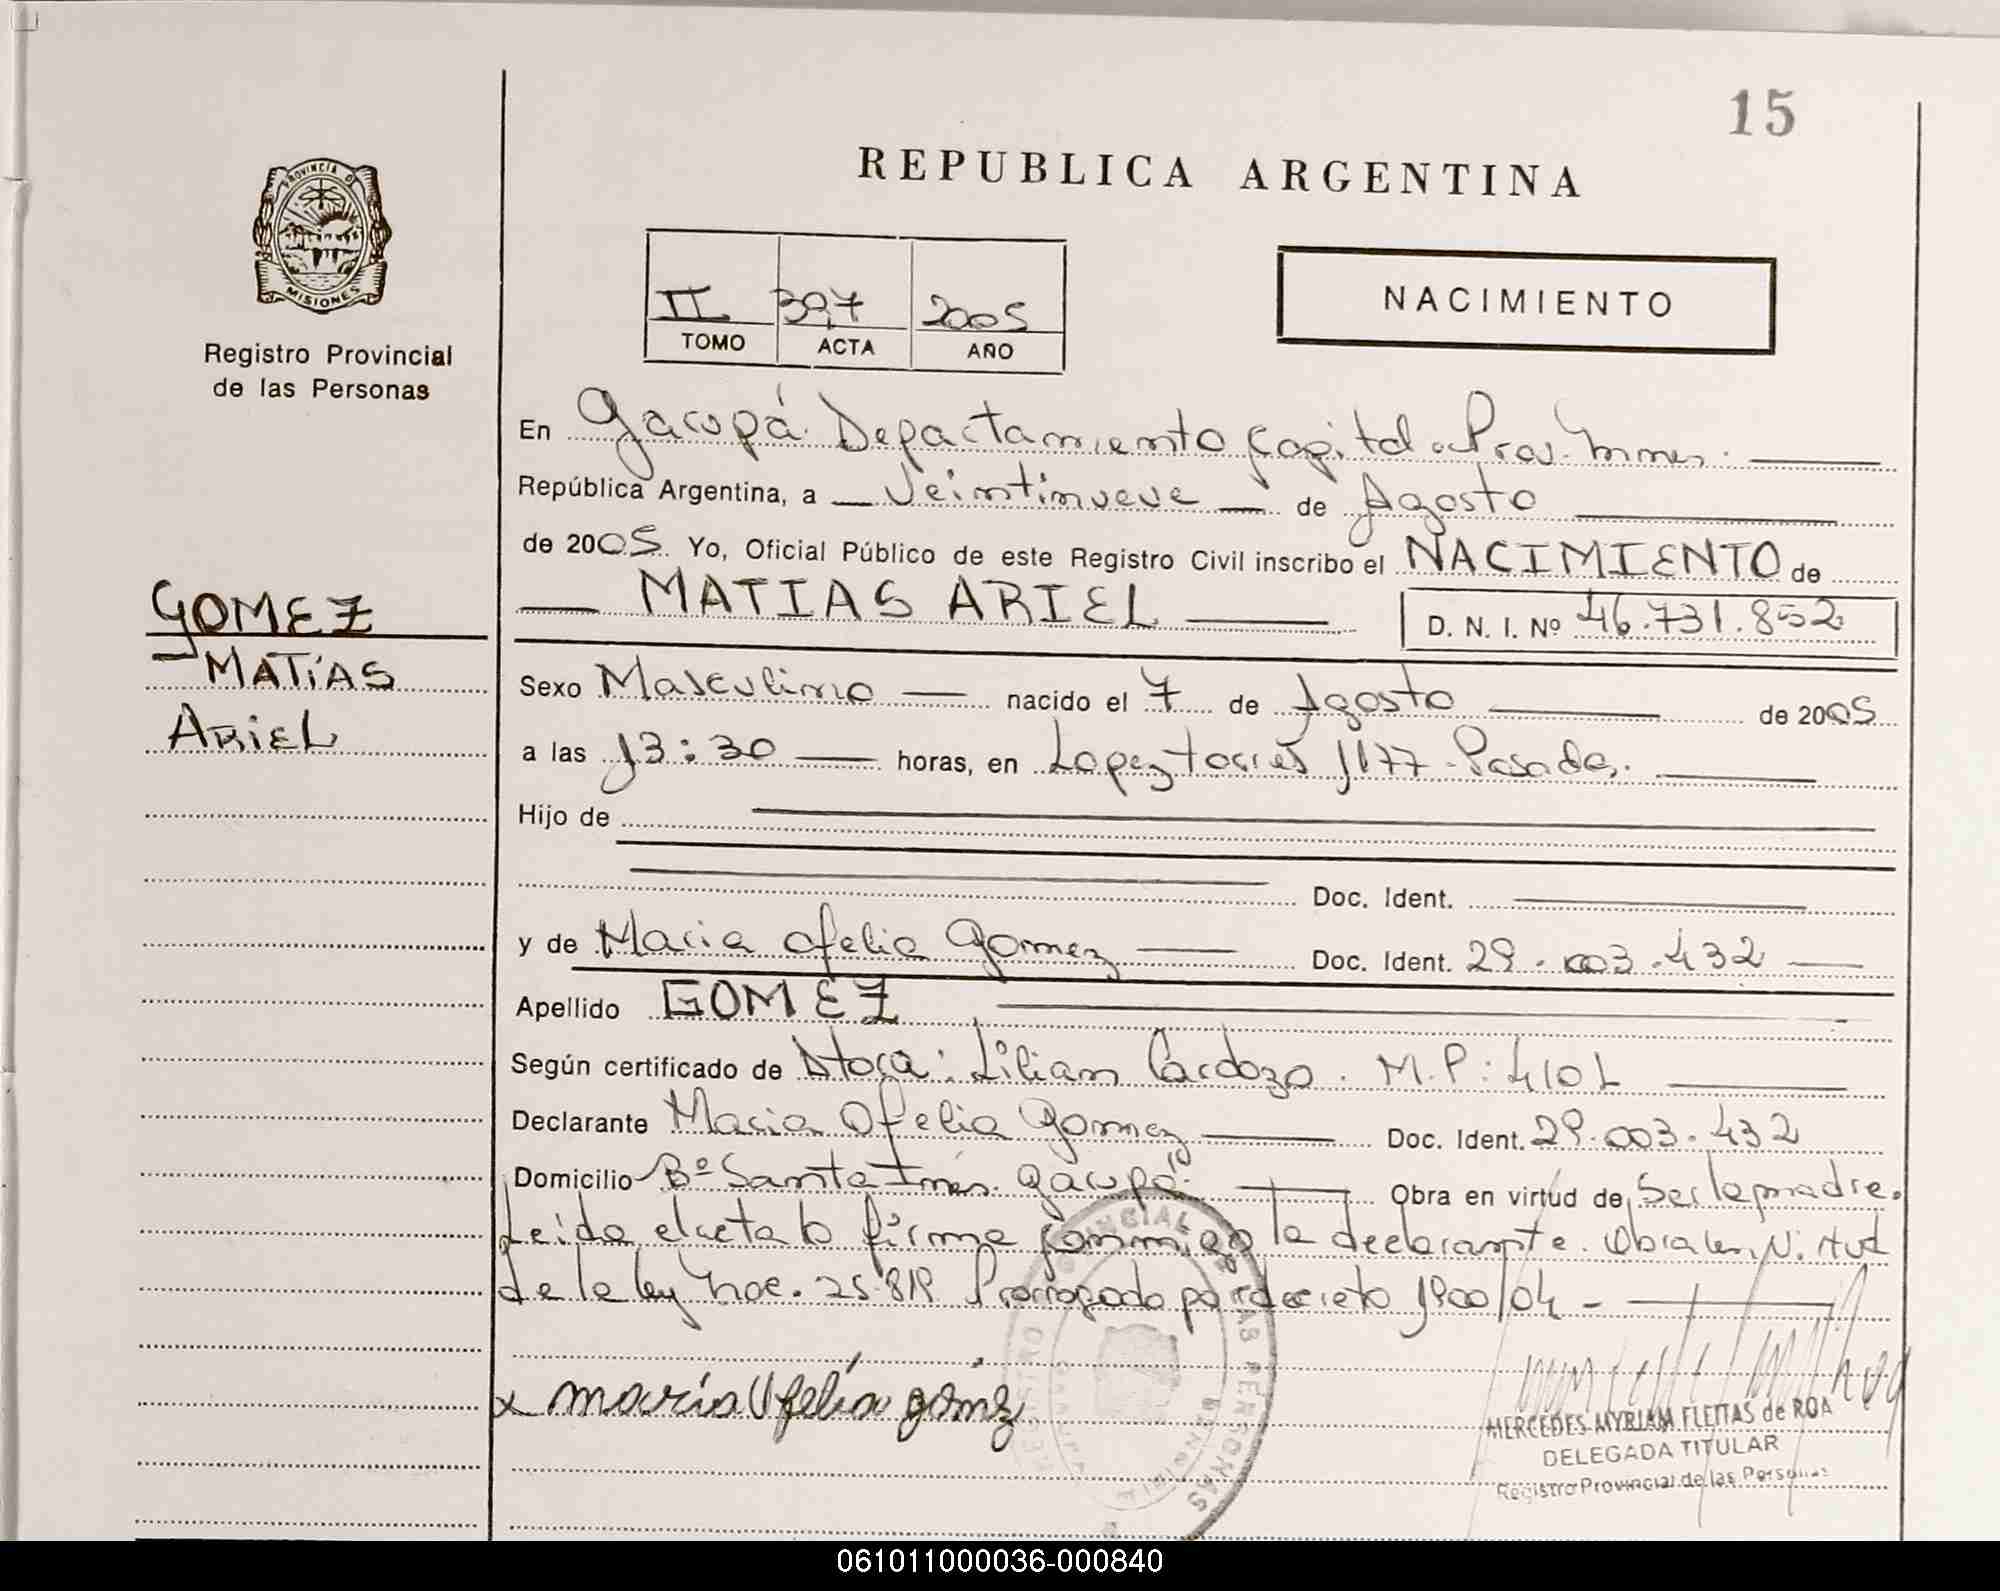 15
REPUBLICA ARGENTINA
PROVINCIA DE
MISIONES
Registro Provincial
de las Personas
II 397 2005
TOMO ACTA AÑO
NACIMIENTO
En Garupá Departamento Capital. Prov. Mnes.
República Argentina, a veintinueve de Agosto
de 2005 Yo, Oficial Público de este Registro Civil inscribo el NACIMIENTO de
MATIAS ARIEL D. N. I. Nº 46.731.852
GOMEZ
MATÍAS
ARIEL
Sexo Masculino nacido el 7 de Agosto de 2005
a las 13:30 horas, en Lopez torres 1177 - Posadas.
Hijo de
Doc. Ident.
y de Maria Ofelia Gomez Doc. Ident. 29.003.432
Apellido GOMEZ
Según certificado de Dtora: Lilian Cardozo. M.P: 410L
Declarante Maria Ofelia Gomez Doc. Ident. 29.003.432
Domicilio Bº Santa Inés. Garupá. Obra en virtud de Ser la madre.
Leida el acta la firma conmigo la declarante. Obra en virtud
de la ley Nac. 25.819 Prorrogado por decreto 1900/04 -
x maria Ofelia gómez
MERCEDES MYRIAM FLEITAS de ROA
DELEGADA TITULAR
Registro Provincial de las Personas
061011000036-000840